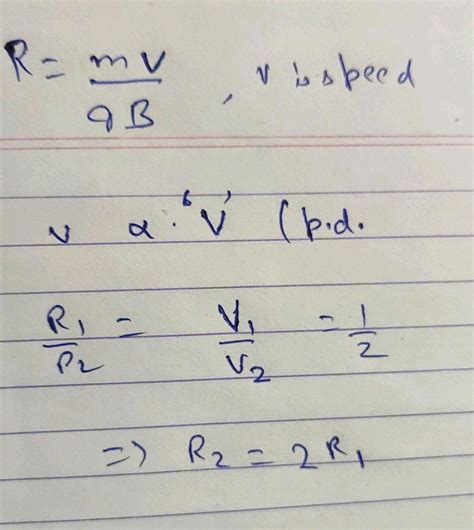 R = mv/qB , v is speed
v ∝ 'V' (p.d.
R₁/R₂ = V₁/V₂ = 1/2
=> R₂ = 2R₁